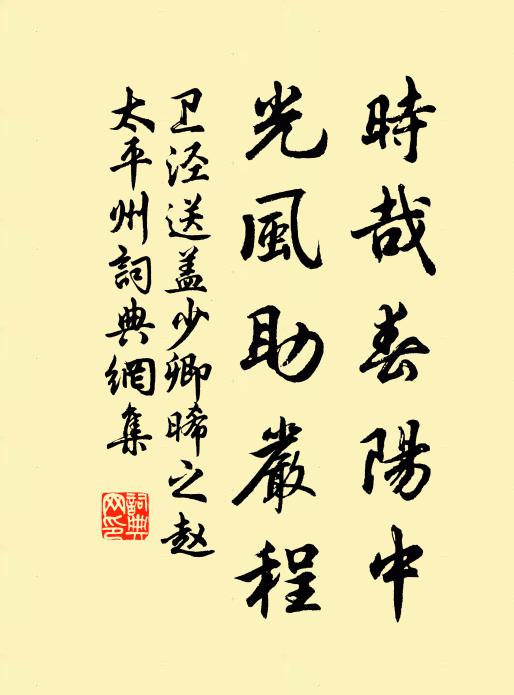 時哉春陽中
光風助嚴程
卫泾送盖少卿晞之赵
太平州詞典網集
詞典网印